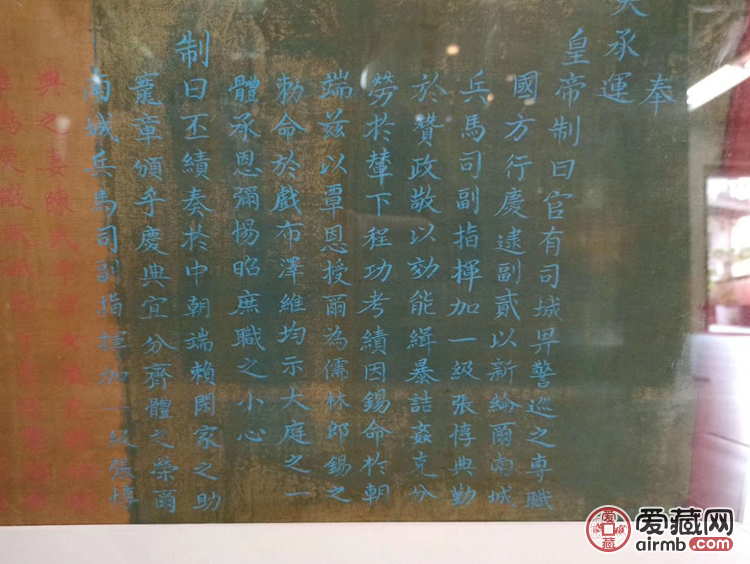 奉
天承運
皇帝制曰官有司城畀警巡之專職
國方行慶逮副貳以新綸爾南城
兵馬司副指揮加一級張惇典勤
於贊政敬以効能緝暴詰姦克分
勞於輦下程功考績因錫命於朝
端茲以覃恩授爾為儒林郎錫之
勅命於戲布澤維均示大庭之一
體承恩彌惕昭庶職之小心
制曰丕績奏於中朝端賴閑家之助
寵章頒乎慶典宜分齊體之榮爾
南城兵馬司副指揮加一級張惇
典之妻陳氏
爱藏网
airmb.com